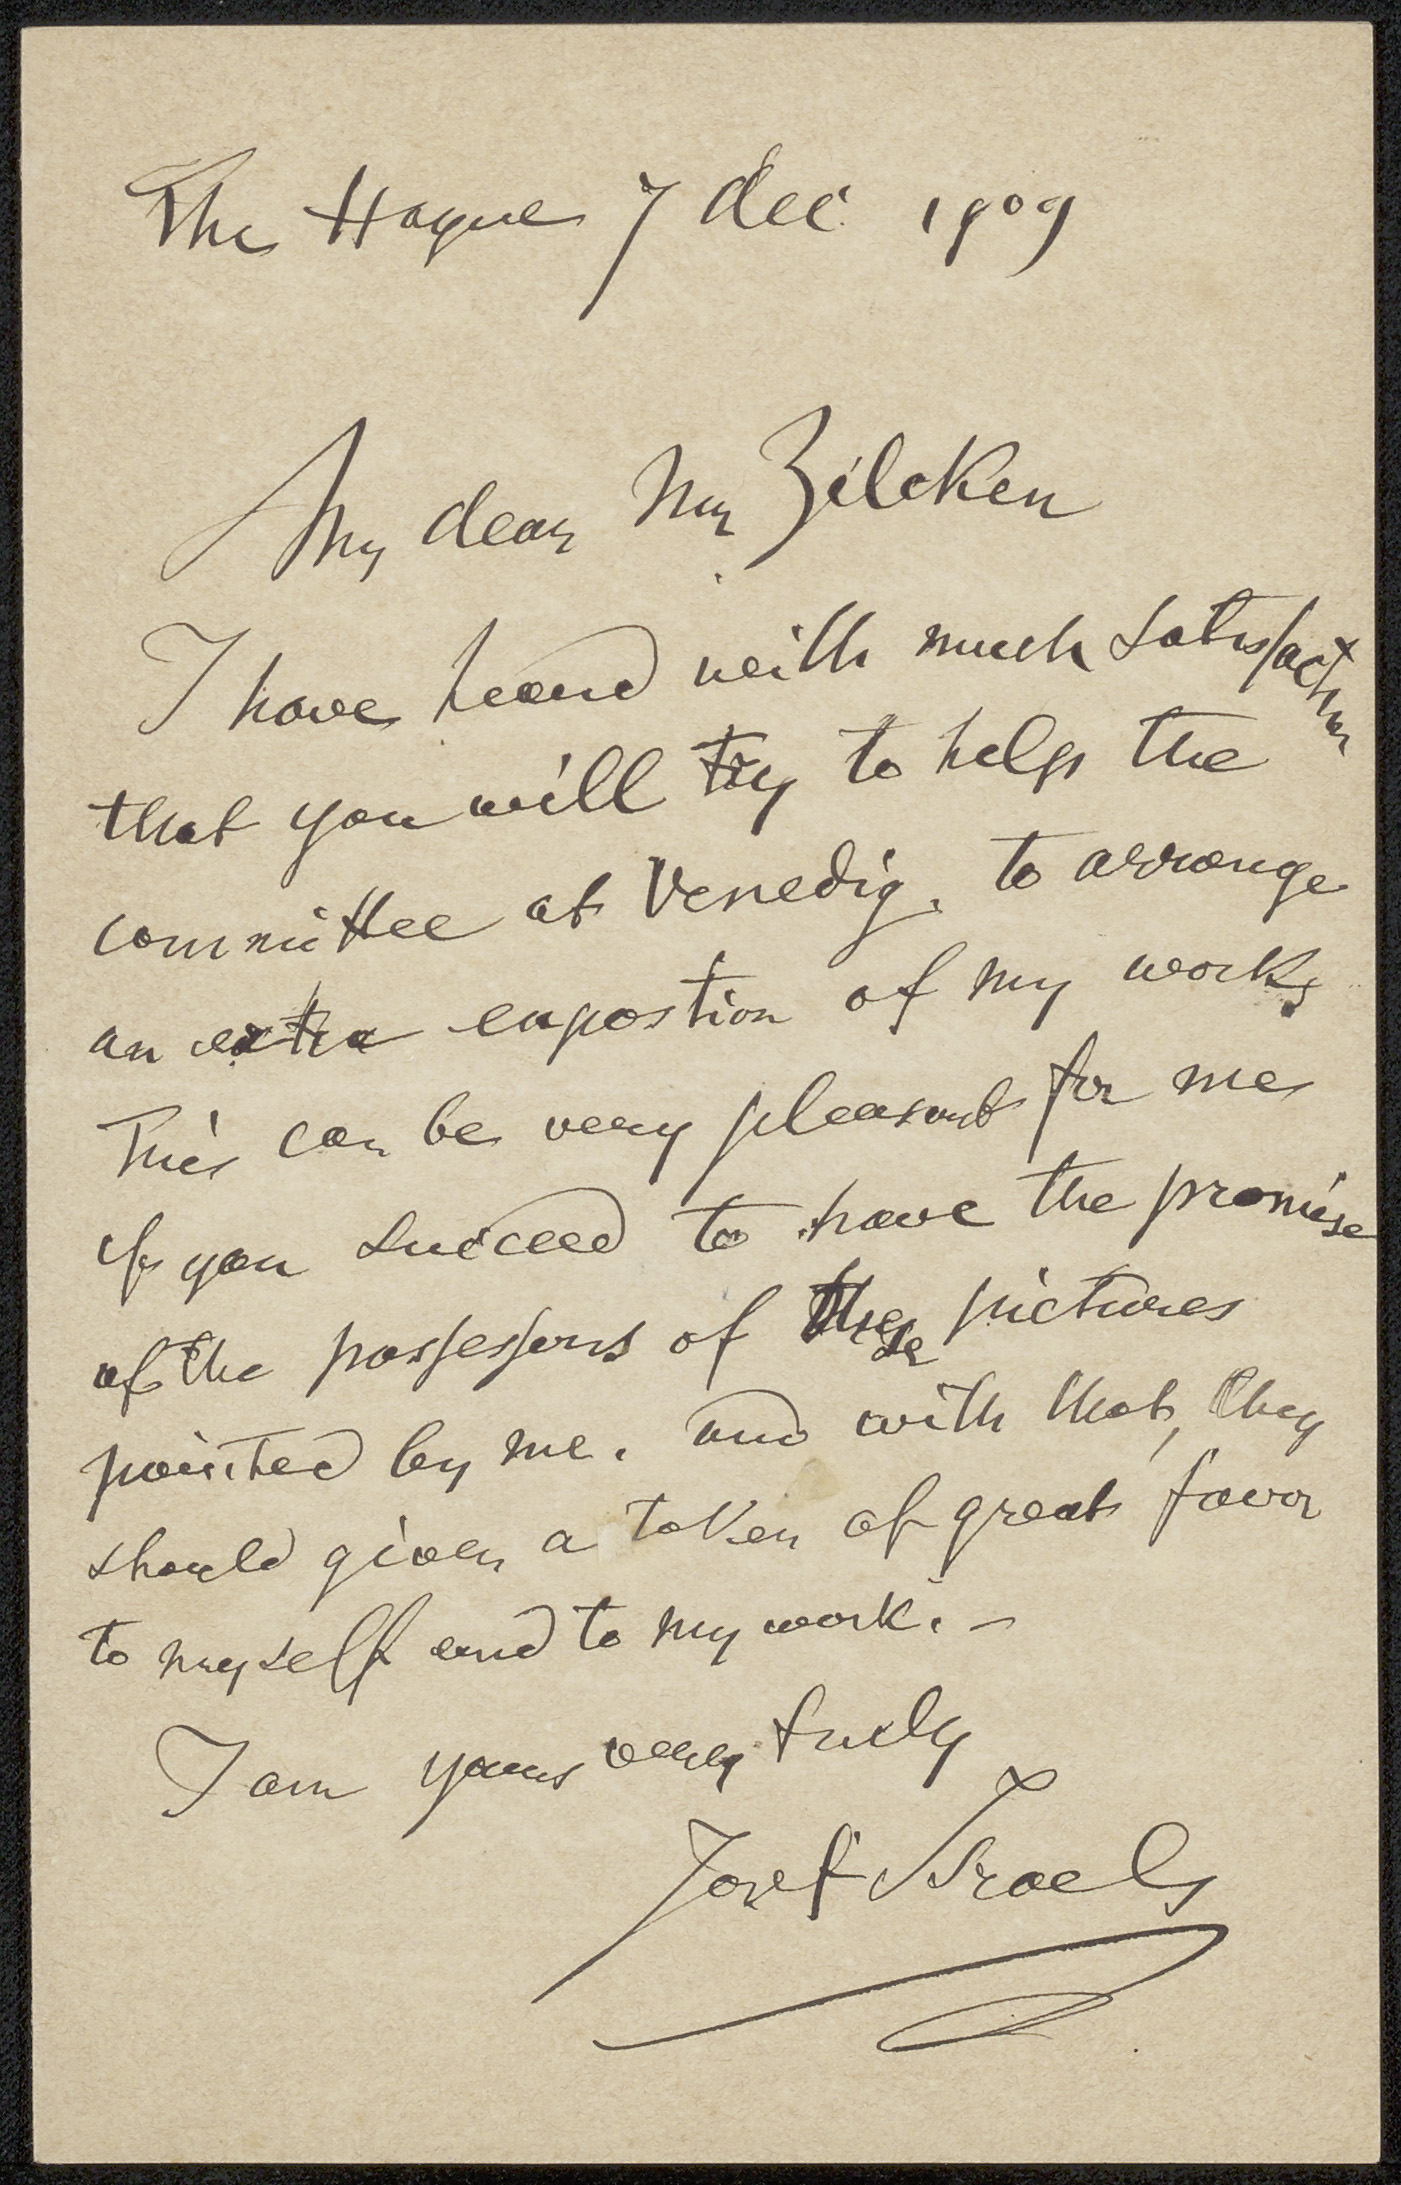 The Hague 7 dec 1909
My dear Mr Zilcken
I have heard with much satisfaction
that you will try to help the
committee at Venedig, to arrange
an extra expostion of my works
This can be very pleasant for me
if you succeed to have the promise
of the possessors of these pictures
painted by me. and with that, they
should given a token of great favor
to myself and to my work. –
I am yours very truly
Jozef Israels